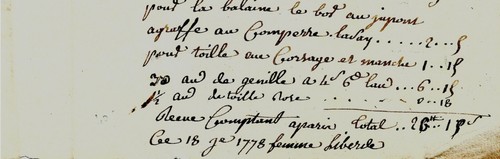 pour la balaine le bor au jupont
agraffe au Comperre lassay ..... 2 .. 5
pour toille au Corsage et manche 1 .. 15
30 au de genille a 4s 6d lau ... 6 .. 15
1/2 au de toille Rose ........ 0 .. 18
Receu Comptant a paris Total .. 15s
Ce 18 je 1778 femme Liberde